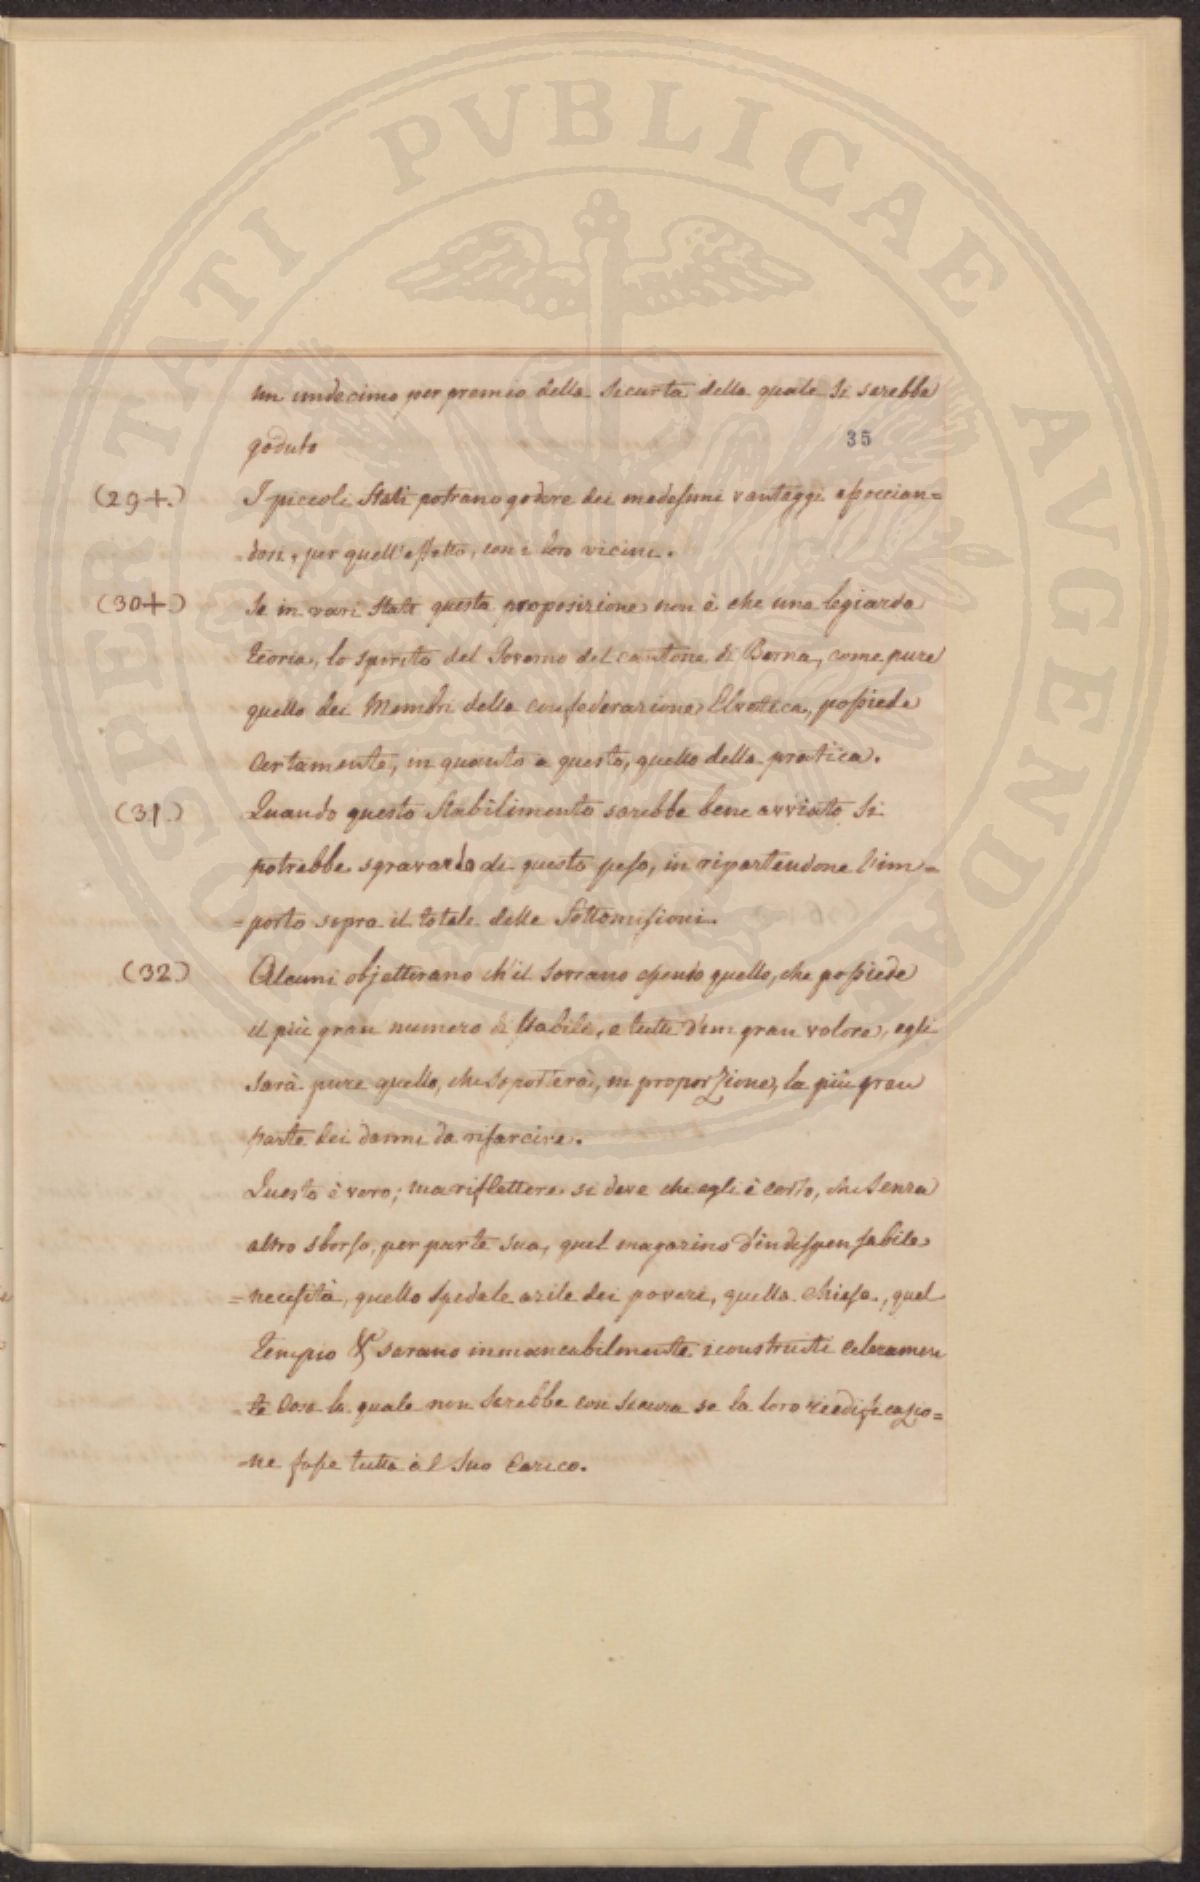 un undecimo per premio della Securtà della quale Si sarebbe
goduto
35
(29+.) I piccoli Stati potrano godere dei medesimi vantaggi associan=
dosi, per quell'effetto, con i loro vicini.
(30+.) Se in vari Stati questa proposizione non è che una legiarda
Teoria, lo spirito del Governo del cantone di Berna, come pure
quello dei Membri della confederazione Elvetica, possiede
Certamente, in quanto a questo, quello della pratica.
(31.) Quando questo Stabilimento sarebbe bene avviato Si
potrebbe sgravarlo di questo peso, in ripartendone l'im=
=porto sopra il totale delle Sottomissioni.
(32.) Alcuni objetterano ch'il Sovrano essendo quello, che possiede
il più gran numero di Stabili, e tutti d'un gran valore, egli
Sarà pure quello, che soporterà, in proporzione, la più gran
parte dei danni da risarcire.
Questo è vero; ma riflettere si deve che egli è certo, che Senza
altro sborso, per parte Sua, quel magazino d'indispensabile
=necessità, quello Spedale azile dei poveri, quella Chiesa, quel
Tempio & sarano inmancabilmente iconstruiti Celeramen
=te Cosa la quale non Sarebbe con sicura se la loro riedificazio=
=ne fosse tutta àl Suo Carico.
SOSPERITATI PVBLICAE AVGENDAE